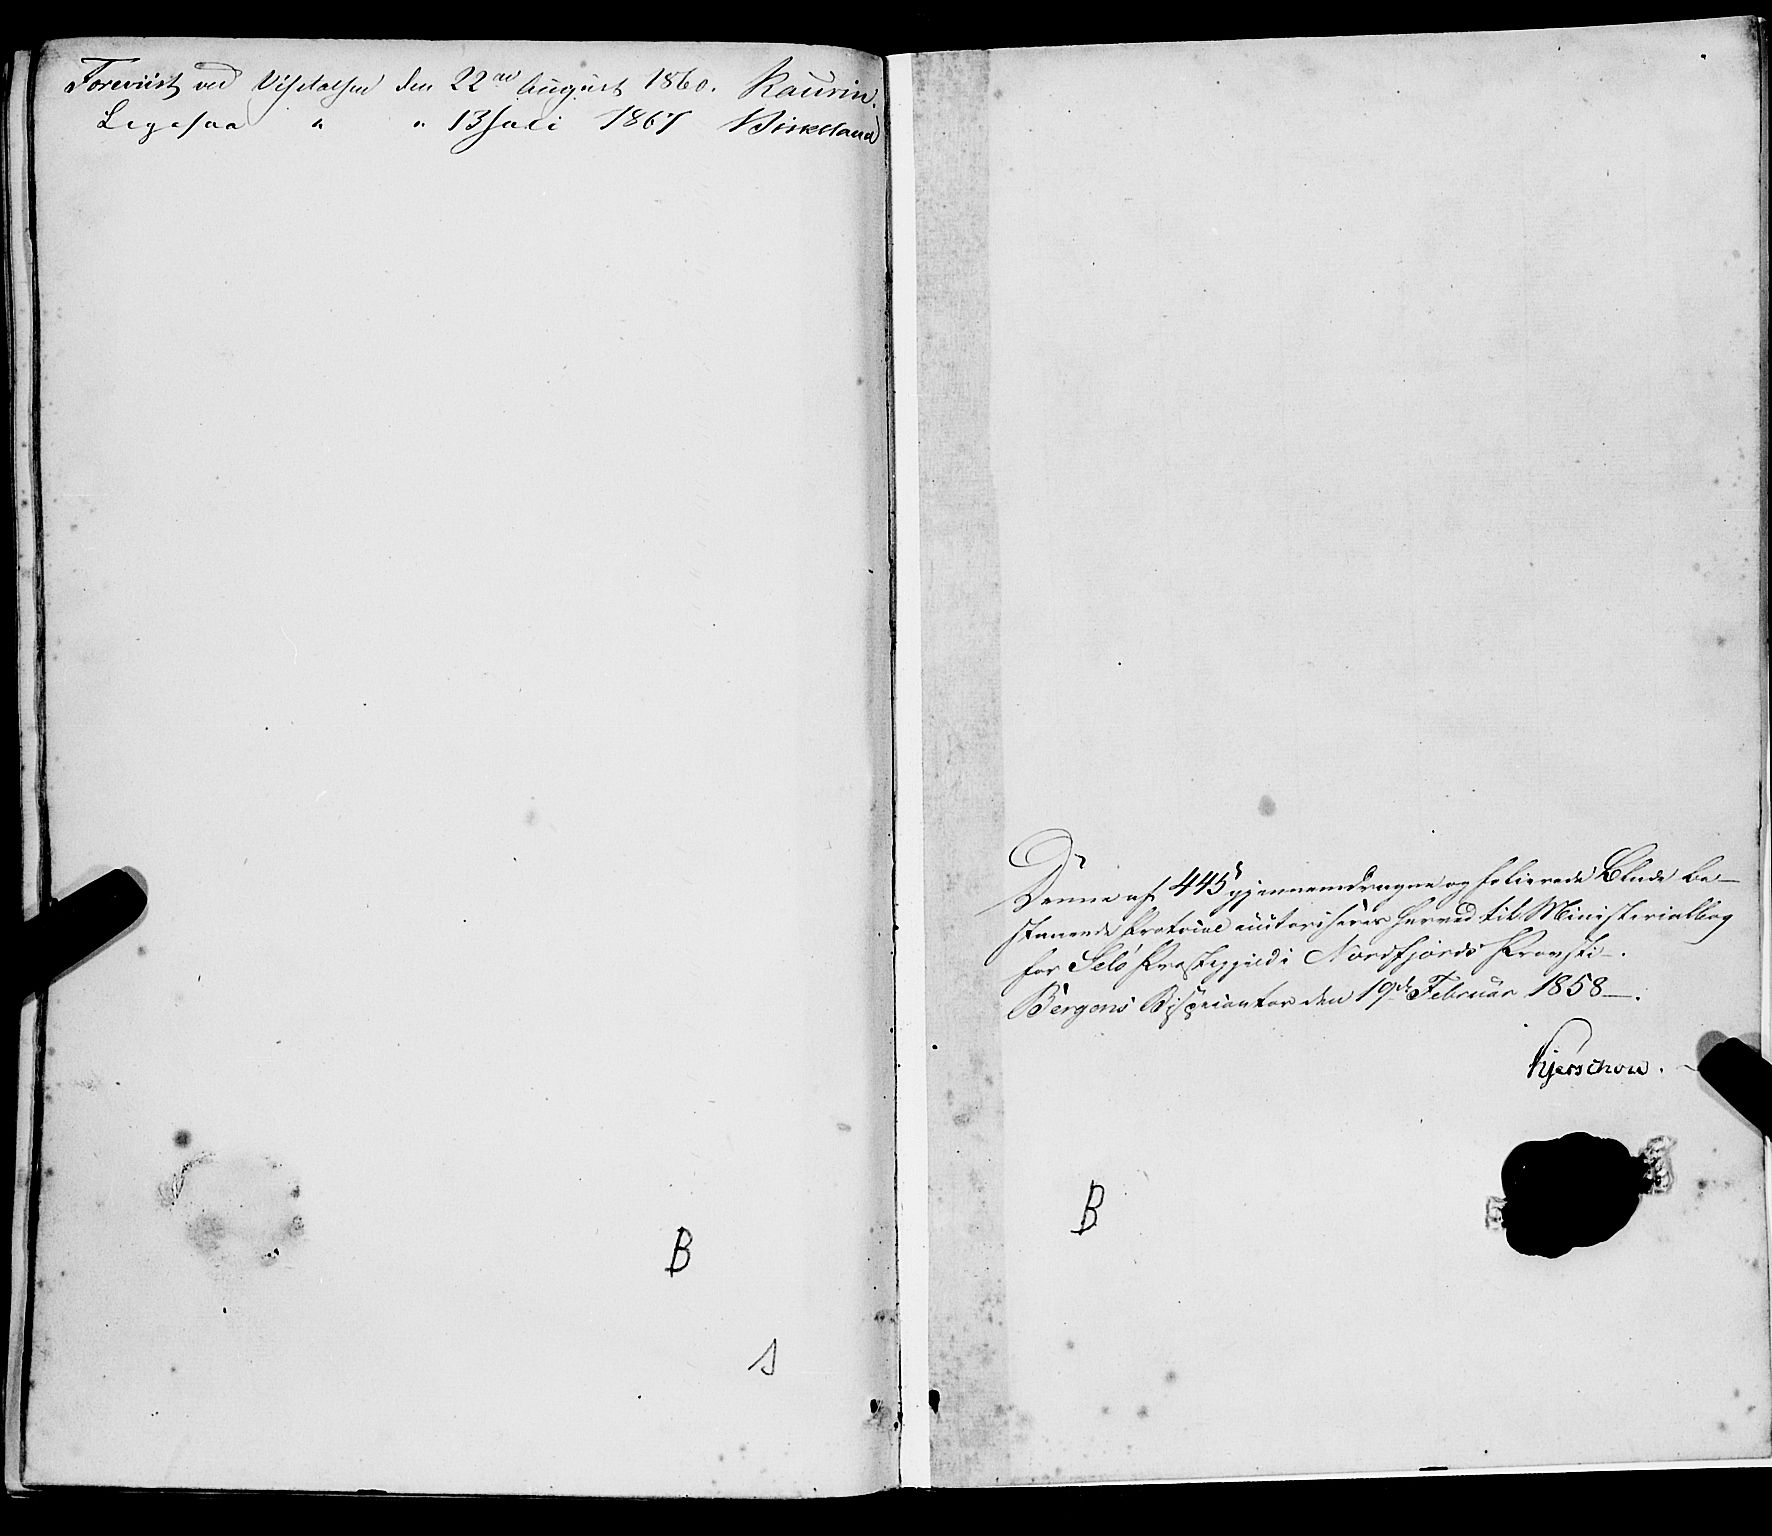 Foreviist ved Visitatsen den 22de August 1860. Kaurin.
Ligesaa " " 13 Juli 1867 Birkeland
B
Denne af 445 gjennemdragne og folierede Blade be-
staaende Protocol autoriseres herved til Ministerialbog
for Selø Præstegjeld i Nordfjords Provsti.
Bergens Bispecontor den 19de Februar 1858.
Kjerschow.
B